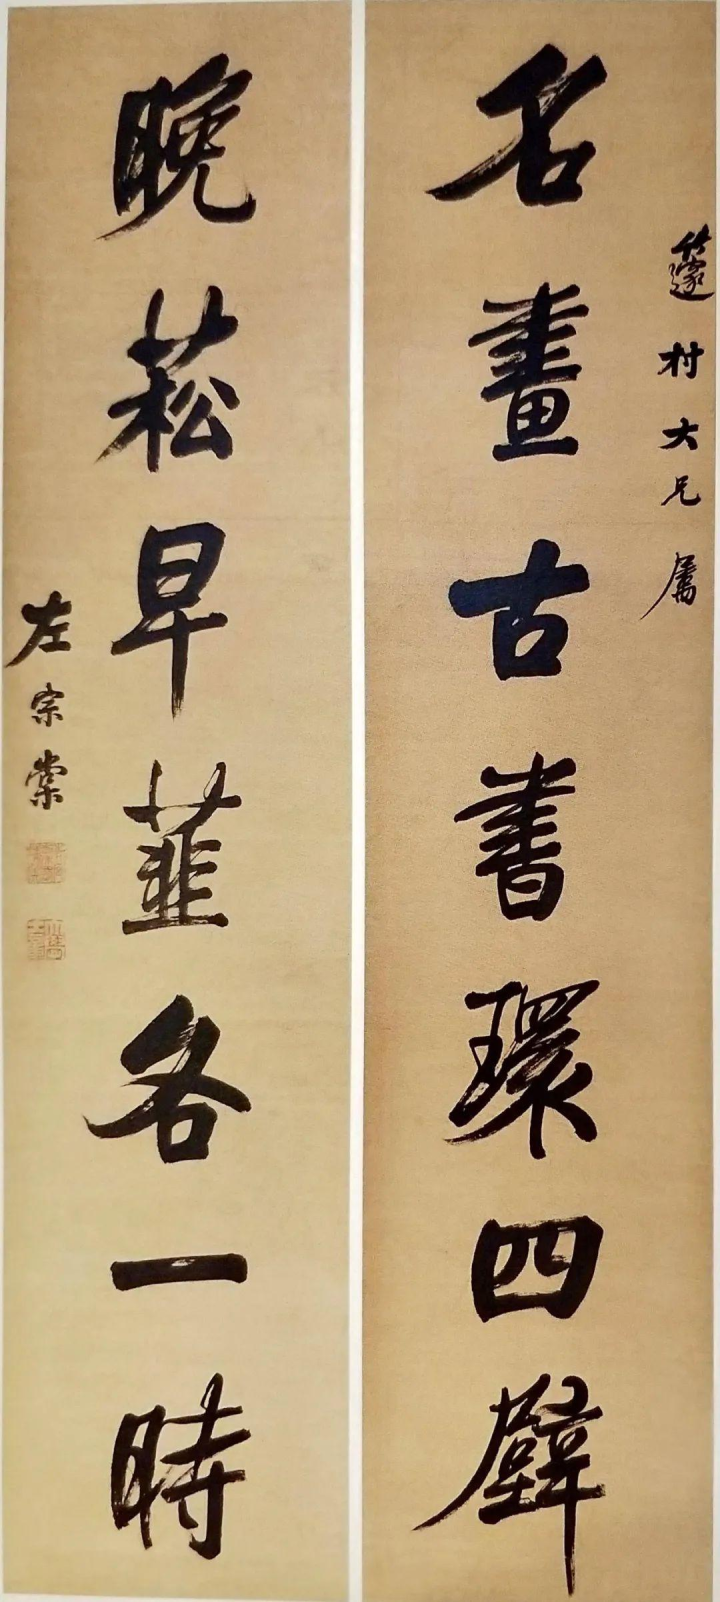 蘧村大兄屬
名畫古書環四壁
晚菘早韮各一時
左宗棠